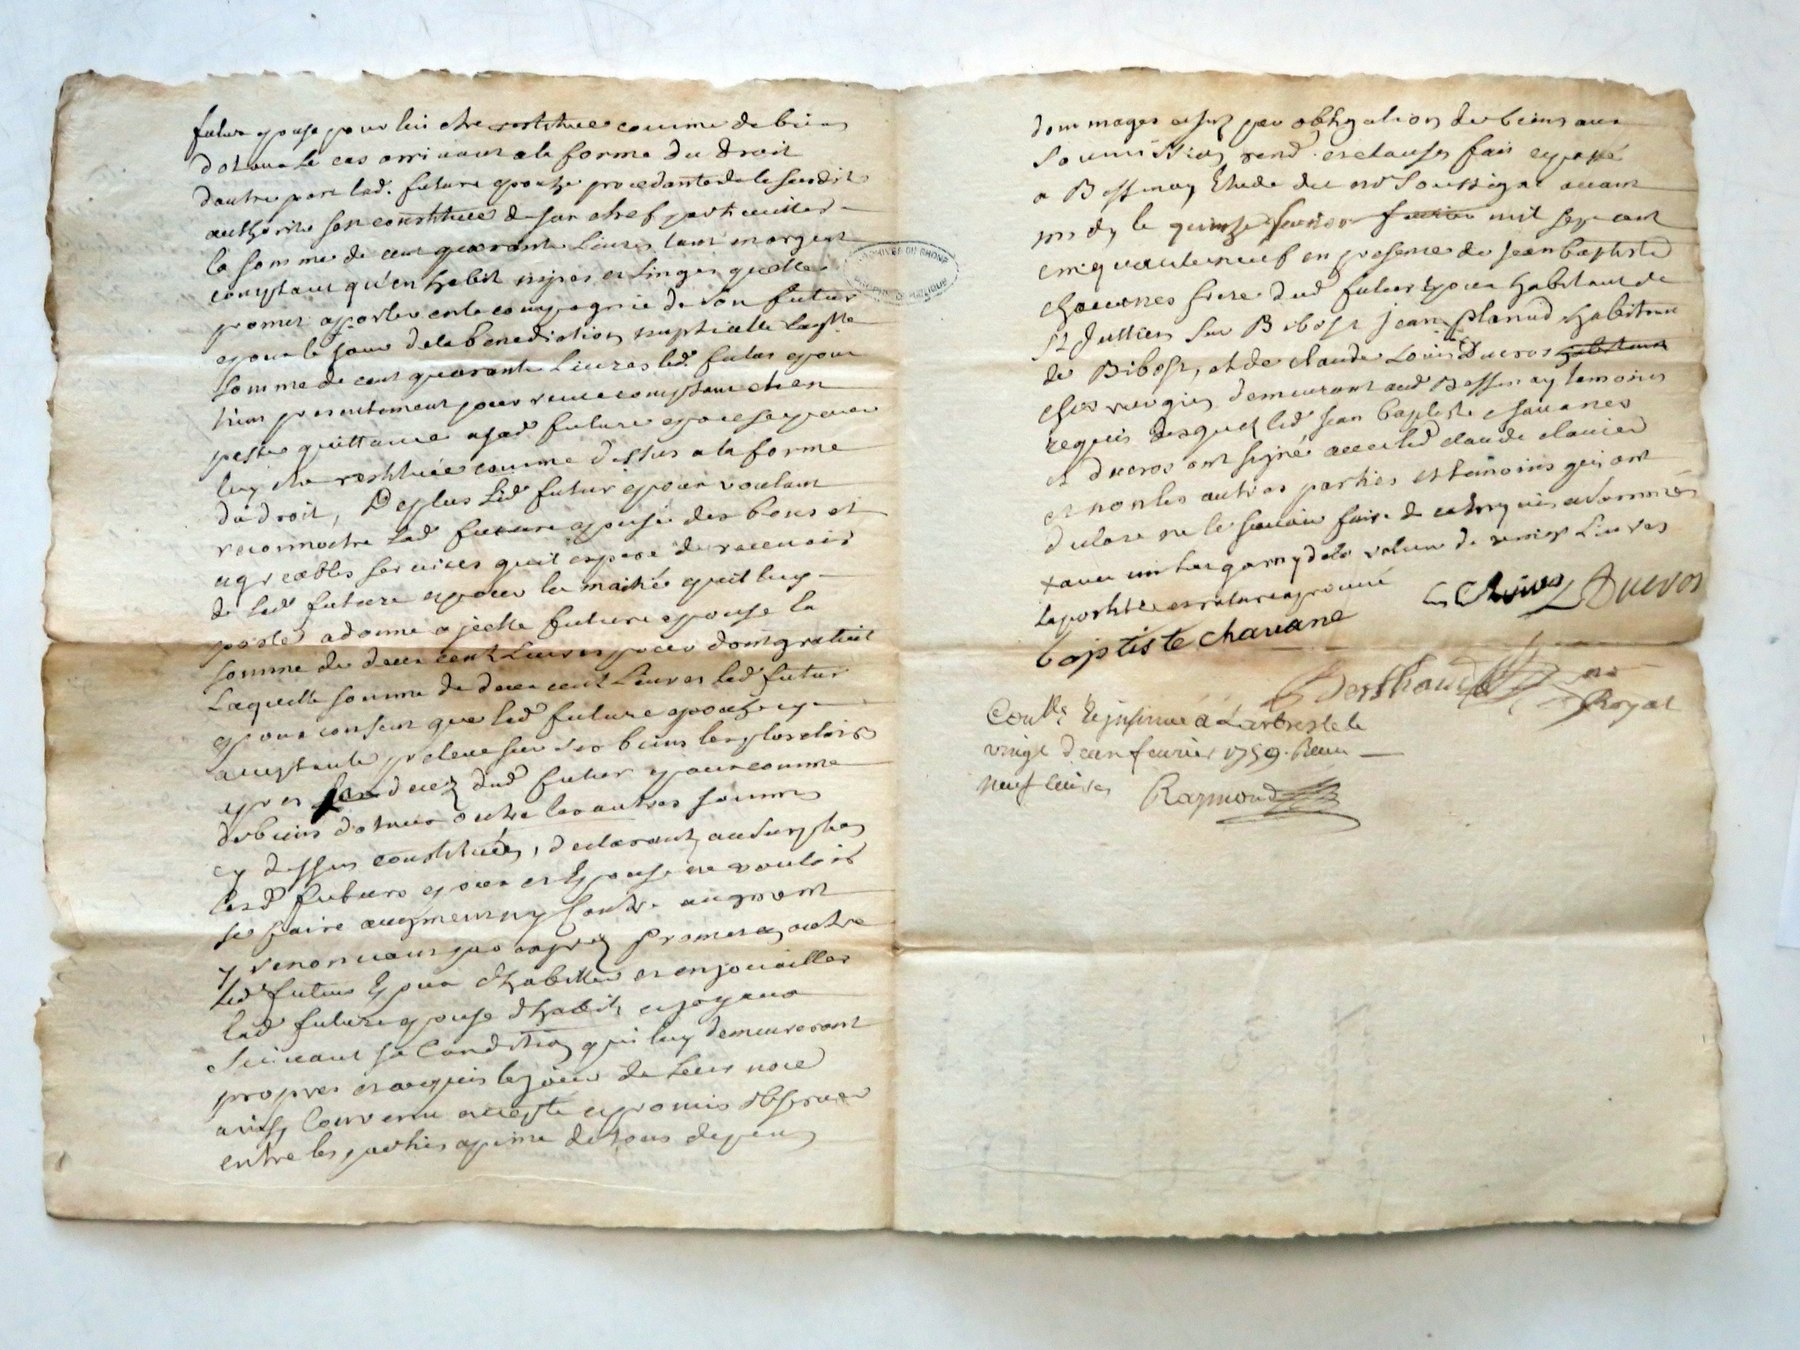 future epouse pour lui etre restituee comme de biens
dotaux le cas arrivant a la forme du droit
dautre part lad. future epouze procedante de la susdite
authorité sest constituée de son chef particullier
la somme de cent quarante Livres tant en argent
comptant qu'en habit nipes et Linges quelle
promet aporter en la compagnie de son futur
epoux le jour de la benediction nuptialle laqlle
somme de cent quarante Livres led. futur epoux
tient presentement pour receue comptant et en
passe quittance a sad future epouse pour
luy etre restituée comme dessus a la forme
du droit, Deplus led futur epoux voulant
reconnoitre lad future epouse des bons et
agreables services quil espere de recevoir
de lad future epouse la maitié quil luy
porte a donné a jcelle future epouse la
somme de deux cent Livres pour dont gratuit
Laquelle somme de deux cent Livres led futur
epoux consent que lad future epouze y
acceptante preleve sur ses biens les plus clairs
apres deces dud futur epoux comme
de biens dotaux outre les autres sommes
cy dessus constituées, declarant au surplus
lesd futurs epoux et Epouse ne vouloir
se faire augment ny contre augment
y renoncant par exprez Promet en outre
led futur Epoux d'habiller et enjoualler
lad future epouse d'habits et joyaux
suivant sa Condition qui luy demeureront
propres et acquis le jour de leur noce
ainsy Convenu accepté et promis observer
entre les parties a peine de tous depens
dommages et jts par obligation de biens aux
Soumissions rend. et clauses fait et passé
a Bessenay Etude du nore Soussigné avant
midy le quinze fevrier fevrier mil sept cent
cinquante neuf en presence de Jean baptiste
chavanes frere dud futur Epoux habitant de
St Jullien sur Bibost jean planud habitant
de Bibost, et de claude Louis Ducros habitant
chirurgien demeurant aud Bessenay temoins
requis desquels led jean baptiste chavanes
et ducros ont signé avec led claude clavier
et non les autres parties et temoins qui ont
declaré ne le scavoir faire de ce enquis et sommés
la postille et rature aprouvé
baptiste chavane
Ducros
Berthoud
Royal
Conllé et insinué à Larbresle le
vingt deux fevrier 1759. Recu
neuf livres
Raymond
ARCHIVES DU RHONE